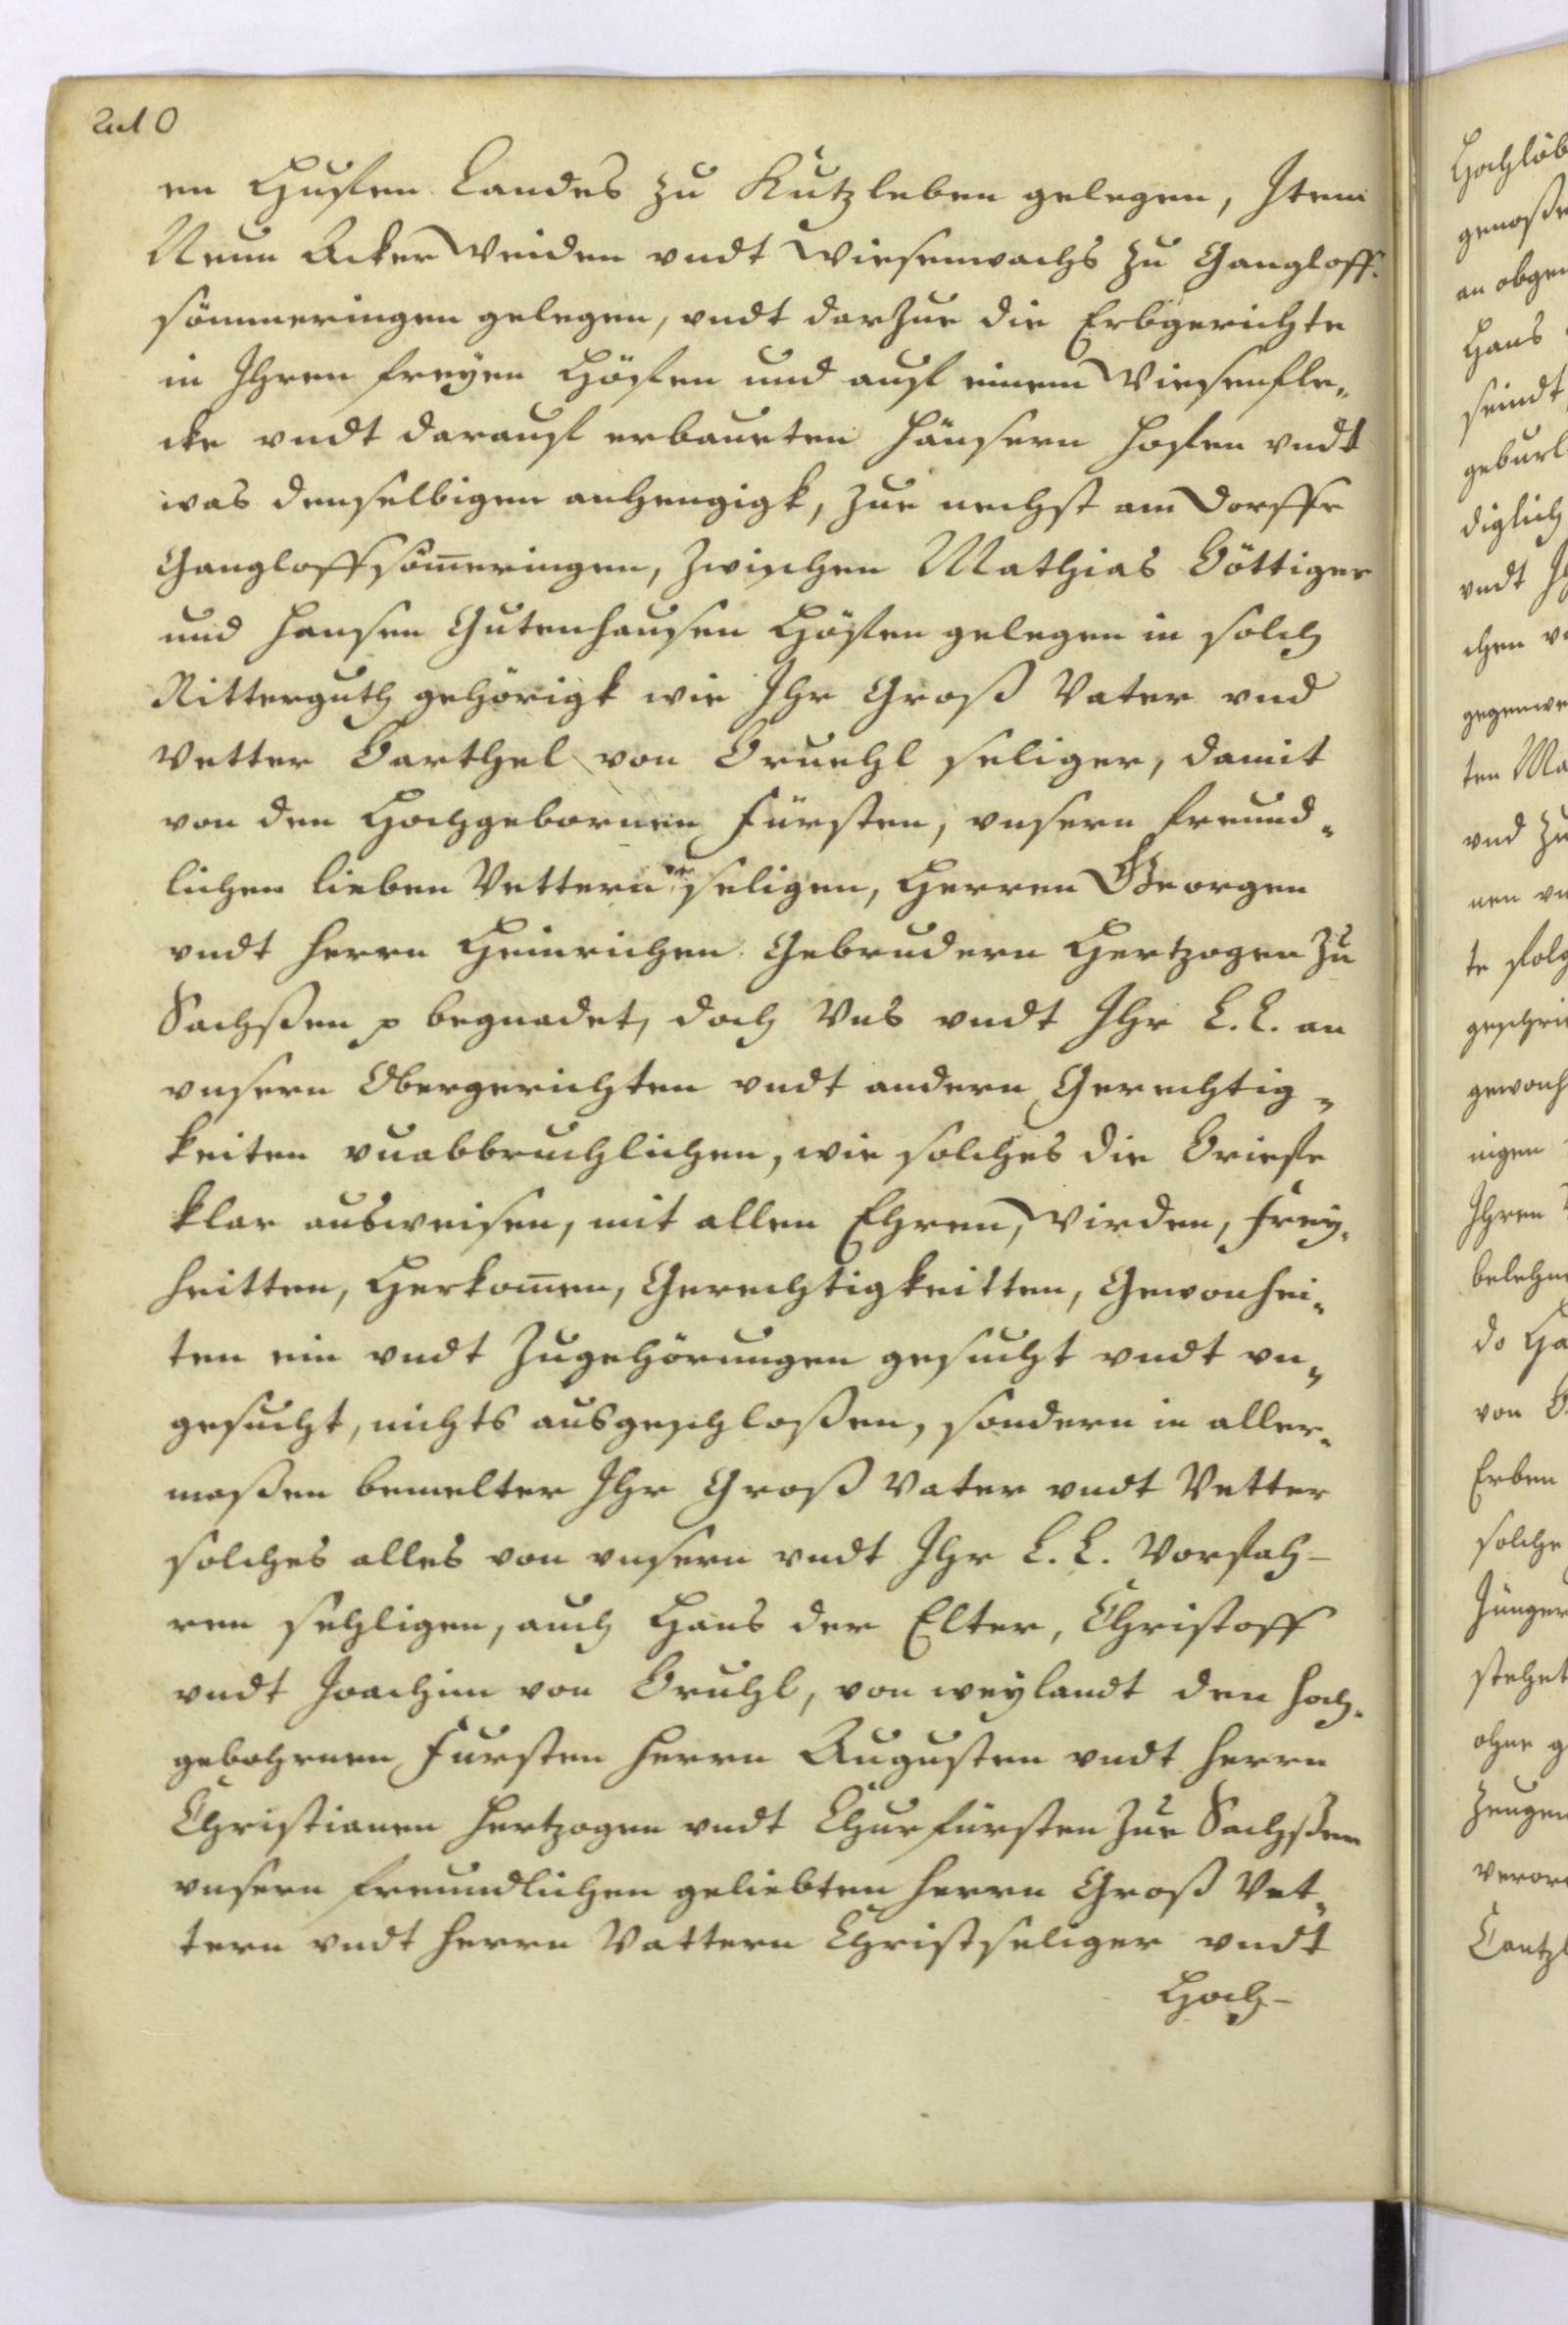 en Huffen Landes zu Kutzleben gelegen, Item
Neun Acker Weiden vndt Wiesenwachs zu Gangloff-
sömmeringen gelegen, vndt darzue die Erbgerichte
in Ihren freyen Höffen und auff einem Wiesenfle„
cke vndt darauff erbaueten häusern hoffen vndt
was denselbigen anhengigk, zue nechst am Dorffe
Gangloffsöm̅eringen, zwischen Mathias Böttiger
und Hansen Gutenhausen Höffen gelegen in solch
Ritterguth gehörigk wie Ihr Groß Vater vnd
Vetter Barthel von Bruehl seliger, damit
von den Hochgebornen Fürsten, vnsern freund„
lichen lieben Vettern seligen, Herren Georgen
vndt Herrn Heinrichen Gebrudern Hertzogen zu
Sachßen p begnadet, doch Vns vndt Ihr L. L. an
vnsern Obergerichten vndt andern Gerechtig„
keiten vnabbruchlichen, wie solches die Brieffe
klar ausweisen, mit allen Ehren, Wirden, Frey„
heitten, Herkom̅en, Gerechtigkeitten, Gewonhei„
ten ein vndt Zugehörungen gesucht vndt vn„
gesucht, nichts ausgeschloßen, sondern in aller„
maßen bemelter Ihr Groß Vater vndt Vetter
solches alles von vnsern vndt Ihr L. L. Vorfah-
ren sehligen, auch Hans der Elter, Christoff
vndt Joachim von Bruhl, von weylandt den hoch„
gebohrnen Fursten Herrn Augusten vndt Herrn
Christianen Hertzogen vndt Churfürsten zue Sachßen
vnsern freundlichen geliebten Herrn Groß Vet„
tern vndt Herrn Vattern Christseliger vndt
Hoch-
Hochlöb
genoße
an obge
Hans
seindt
geburl
diglich
vndt Ih
chen v
gegenwe
ten Ma
vnd zu
nen vn
te folg
geschrie
gewonh
nigen
Ihren
belehn
do Ha
von B
Erben
solche
Jünger
stehet
ohne g
Zeugen
Veror
Cantzl